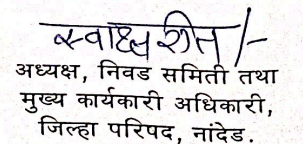 स्वाक्षरीत/-
अध्यक्ष, निवड समिती तथा
मुख्य कार्यकारी अधिकारी,
जिल्हा परिषद, नांदेड.